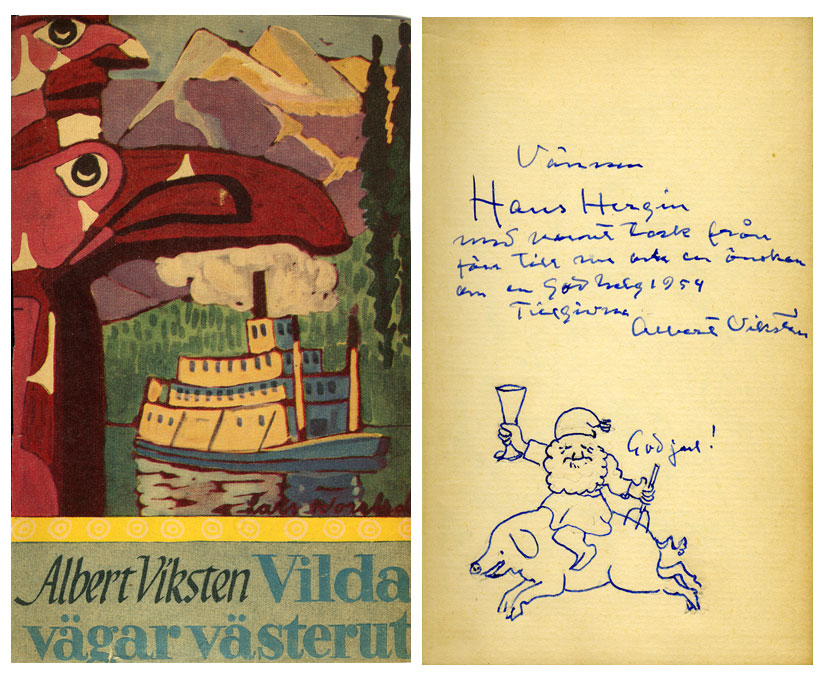 Albert Viksten Vilda
vägar västerut
Vännen
Hans Hergin
med varmt tack från
till nu och en önskan
om en God helg 1954
Tillgivne
Albert Viksten
God jul!